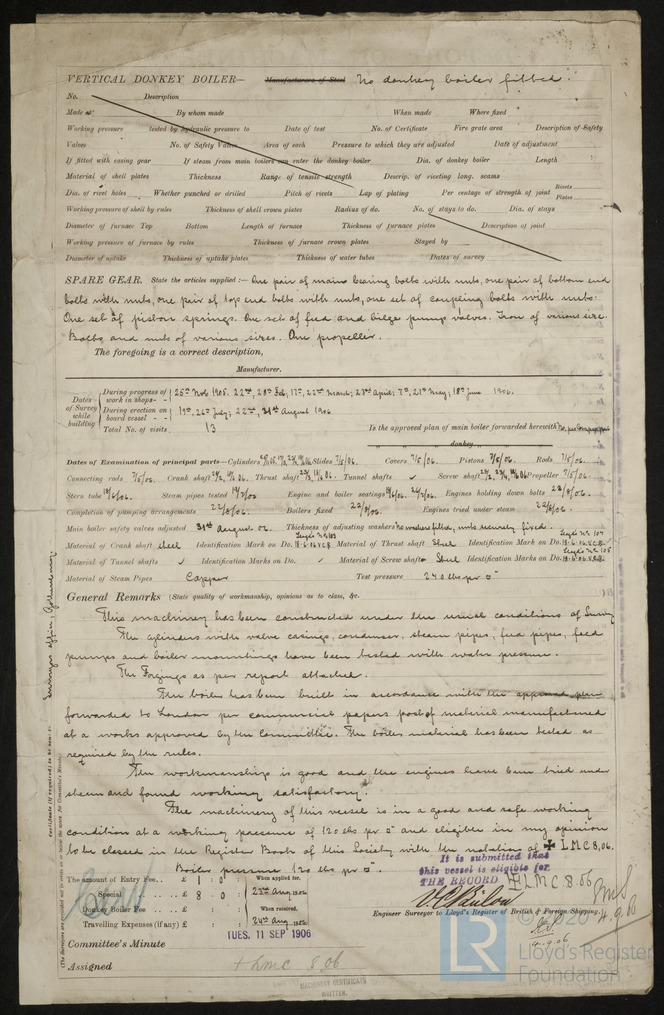 VERTICAL DONKEY BOILER— Manufacturers of Steel No donkey boiler fitted.
No. Description
Made at By whom made When made Where fixed
Working pressure tested by hydraulic pressure to Date of test No. of Certificate Fire grate area Description of Safety
Valves No. of Safety Valves Area of each Pressure to which they are adjusted Date of adjustment
If fitted with easing gear If steam from main boilers can enter the donkey boiler Dia. of donkey boiler Length
Material of shell plates Thickness Range of tensile strength Descrip. of riveting long. seams
Dia. of rivet holes Whether punched or drilled Pitch of rivets Lap of plating Per centage of strength of joint Rivets Plates
Working pressure of shell by rules Thickness of shell crown plates Radius of do. No. of stays to do. Dia. of stays
Diameter of furnace Top Bottom Length of furnace Thickness of furnace plates Description of joint
Working pressure of furnace by rules Thickness of furnace crown plates Stayed by
Diameter of uptake Thickness of uptake plates Thickness of water tubes Dates of survey
SPARE GEAR. State the articles supplied:— One pair of main bearing bolts with nuts, one pair of bottom end
bolts with nuts, one pair of top end bolts with nuts, one set of coupling bolts with nuts.
One set of piston springs. One set of feed and bilge pump valves. Iron of various size.
Bolts and nuts of various sizes. One propeller.
The foregoing is a correct description,
Manufacturer.
Dates of Survey while building
During progress of work in shops - - 25th Nov 1905. 22nd, 28th Feb; 17th, 22nd March; 23rd April; 7th, 21st May; 18th June 1906.
During erection on board vessel - - 19th, 26th July; 22nd, 31st August 1906
Total No. of visits 13
Is the approved plan of main boiler forwarded herewith No,
" " " donkey " " "
Dates of Examination of principal parts—Cylinders Slides 7/5/06. Covers 7/5/06. Pistons 7/5/06. Rods 7/5/06.
Connecting rods 7/5/06. Crank shaft Thrust shaft Tunnel shafts ✓ Screw shaft Propeller 7/5/06.
Stern tube 18/6/06. Steam pipes tested 19/7/06 Engine and boiler seatings Engines holding down bolts 22/8/06.
Completion of pumping arrangements 22/8/06. Boilers fixed 22/8/06. Engines tried under steam 22/8/06.
Main boiler safety valves adjusted 31st August 06. Thickness of adjusting washers No washers fitted, nuts securely fixed.
Material of Crank shaft steel Identification Mark on Do. Material of Thrust shaft Steel Identification Mark on Do.
Material of Tunnel shafts ✓ Identification Marks on Do. ✓ Material of Screw shafts Steel Identification Marks on Do.
Material of Steam Pipes Copper Test pressure 240 lbs per □"
General Remarks (State quality of workmanship, opinions as to class, &c.
This machinery has been constructed under the usual conditions of Survey
The cylinders with valve casings, condenser, steam pipes, feed pipes, feed
pumps and boiler mountings have been tested with water pressure.
The Forgings as per report attached.
The boiler has been built in accordance with the approved plan
forwarded to London per commercial papers post of material manufactured
at a works approved by the Committee. The boiler material has been tested as
required by the rules.
The workmanship is good and the engines have been tried under
steam and found working satisfactory.
The machinery of this vessel is in a good and safe working
condition at a working pressure of 120 lbs per □" and eligible in my opinion
to be classed in the Register Book of this Society with the notation of ✠ LMC 8,06.
Boiler pressure 120 lbs per □".
It is submitted that
this vessel is eligible for
THE RECORD ✠ LMC 8.06
The amount of Entry Fee.. £ 1 : 0 : When applied for,
Special .. .. £ 8 : 0 : 23rd Aug 1906
Donkey Boiler Fee .. .. £ : : When received,
Travelling Expenses (if any) £ : : 24th Aug 1906
Engineer Surveyor to Lloyd's Register of British & Foreign Shipping.
4.9.06
4.9.06
TUES. 11 SEP 1906
Committee's Minute
Assigned + LMC 8.06
MACHINERY CERTIFICATE
WRITTEN.
Certificate (if required) to be sent to
(The Surveyors are requested not to write on or below the space for Committee's Minute.)
© 2020
LR
Lloyd's Register
Foundation